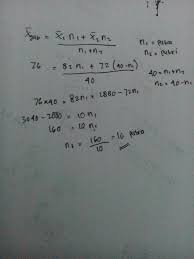 x̄gab = x̄₁ n₁ + x̄₂ n₂ / n₁ + n₂
n₁ = putra
n₂ = putri
76 = 82 n₁ + 72 (40 - n₁) / 40
40 = n₁ + n₂
n₂ = 40 - n₁
76 × 40 = 82 n₁ + 2880 - 72 n₁
3040 - 2880 = 10 n₁
160 = 10 n₁
n₁ = 160 / 10 = 16 putra